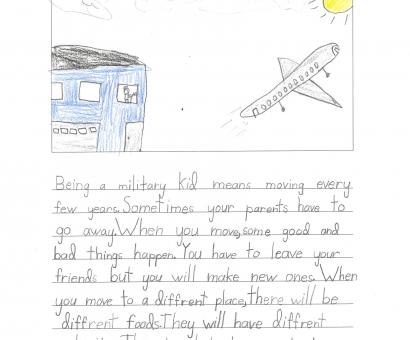 Being a military kid means moving every
few years. Sometimes your parents have to
go away. When you move, some good and
bad things happen. You have to leave your
friends but you will make new ones. When
you move to a diffrent place, there will be
diffrent foods. They will have diffrent